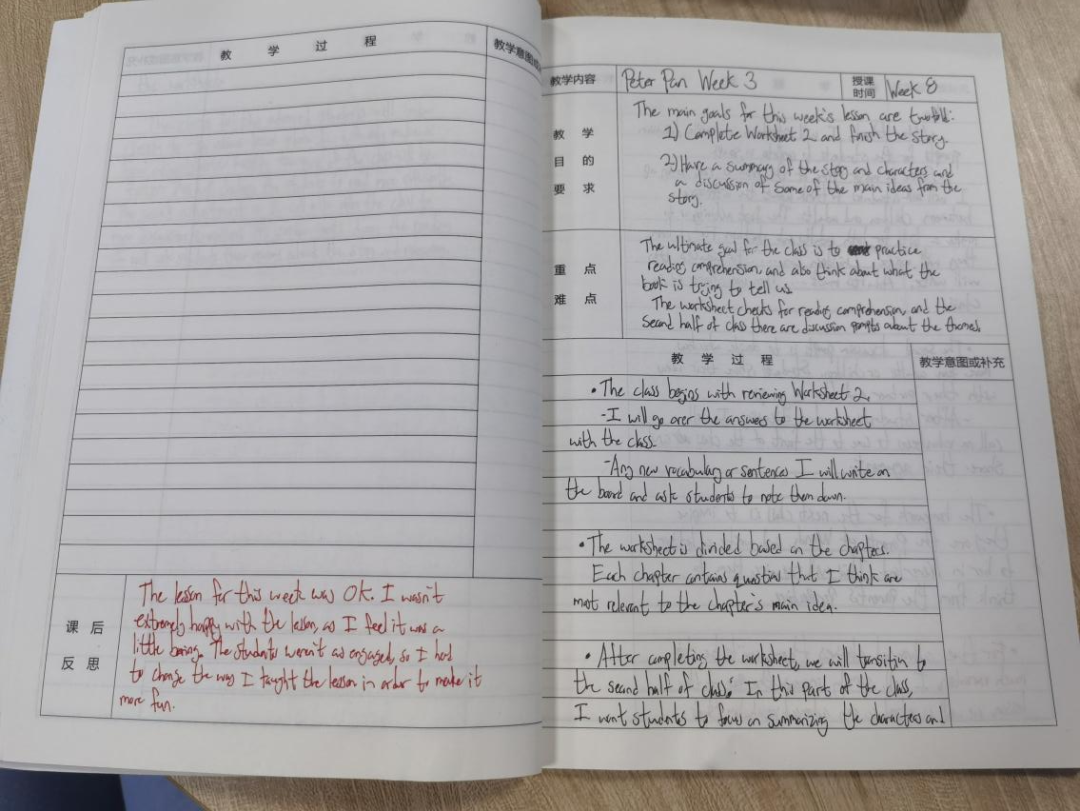 教 学 过 程
教学意图或
课 后
反 思
The lesson for this week was OK. I wasn't
extremely happy with the lesson, as I feel it was a
little boring. The students weren't as engaged, so I had
to change the way I taught the lesson in order to make it
more fun.
教学内容 Peter Pan Week 3 授课时间 Week 8
教 学
目 的
要 求
The main goals for this week's lesson are twofold:
1) Complete Worksheet 2 and finish the story.
2) Have a summary of the story and characters and
a discussion of some of the main ideas from the
story.
重 点
难 点
The ultimate goal for the class is to practice
reading comprehension, and also think about what the
book is trying to tell us.
The worksheet checks for reading comprehension, and the
second half of class there are discussion prompts about the themes.
教 学 过 程 教学意图或补充
• The class begins with reviewing Worksheet 2.
- I will go over the answers to the worksheet
with the class.
- Any new vocabulary or sentences I will write on
the board and ask students to note them down.
• The worksheet is divided based on the chapters.
Each chapter contains questions that I think are
most relevant to the chapter's main idea.
• After completing the worksheet, we will transition to
the second half of class: In this part of the class,
I want students to focus on summarizing the characters and